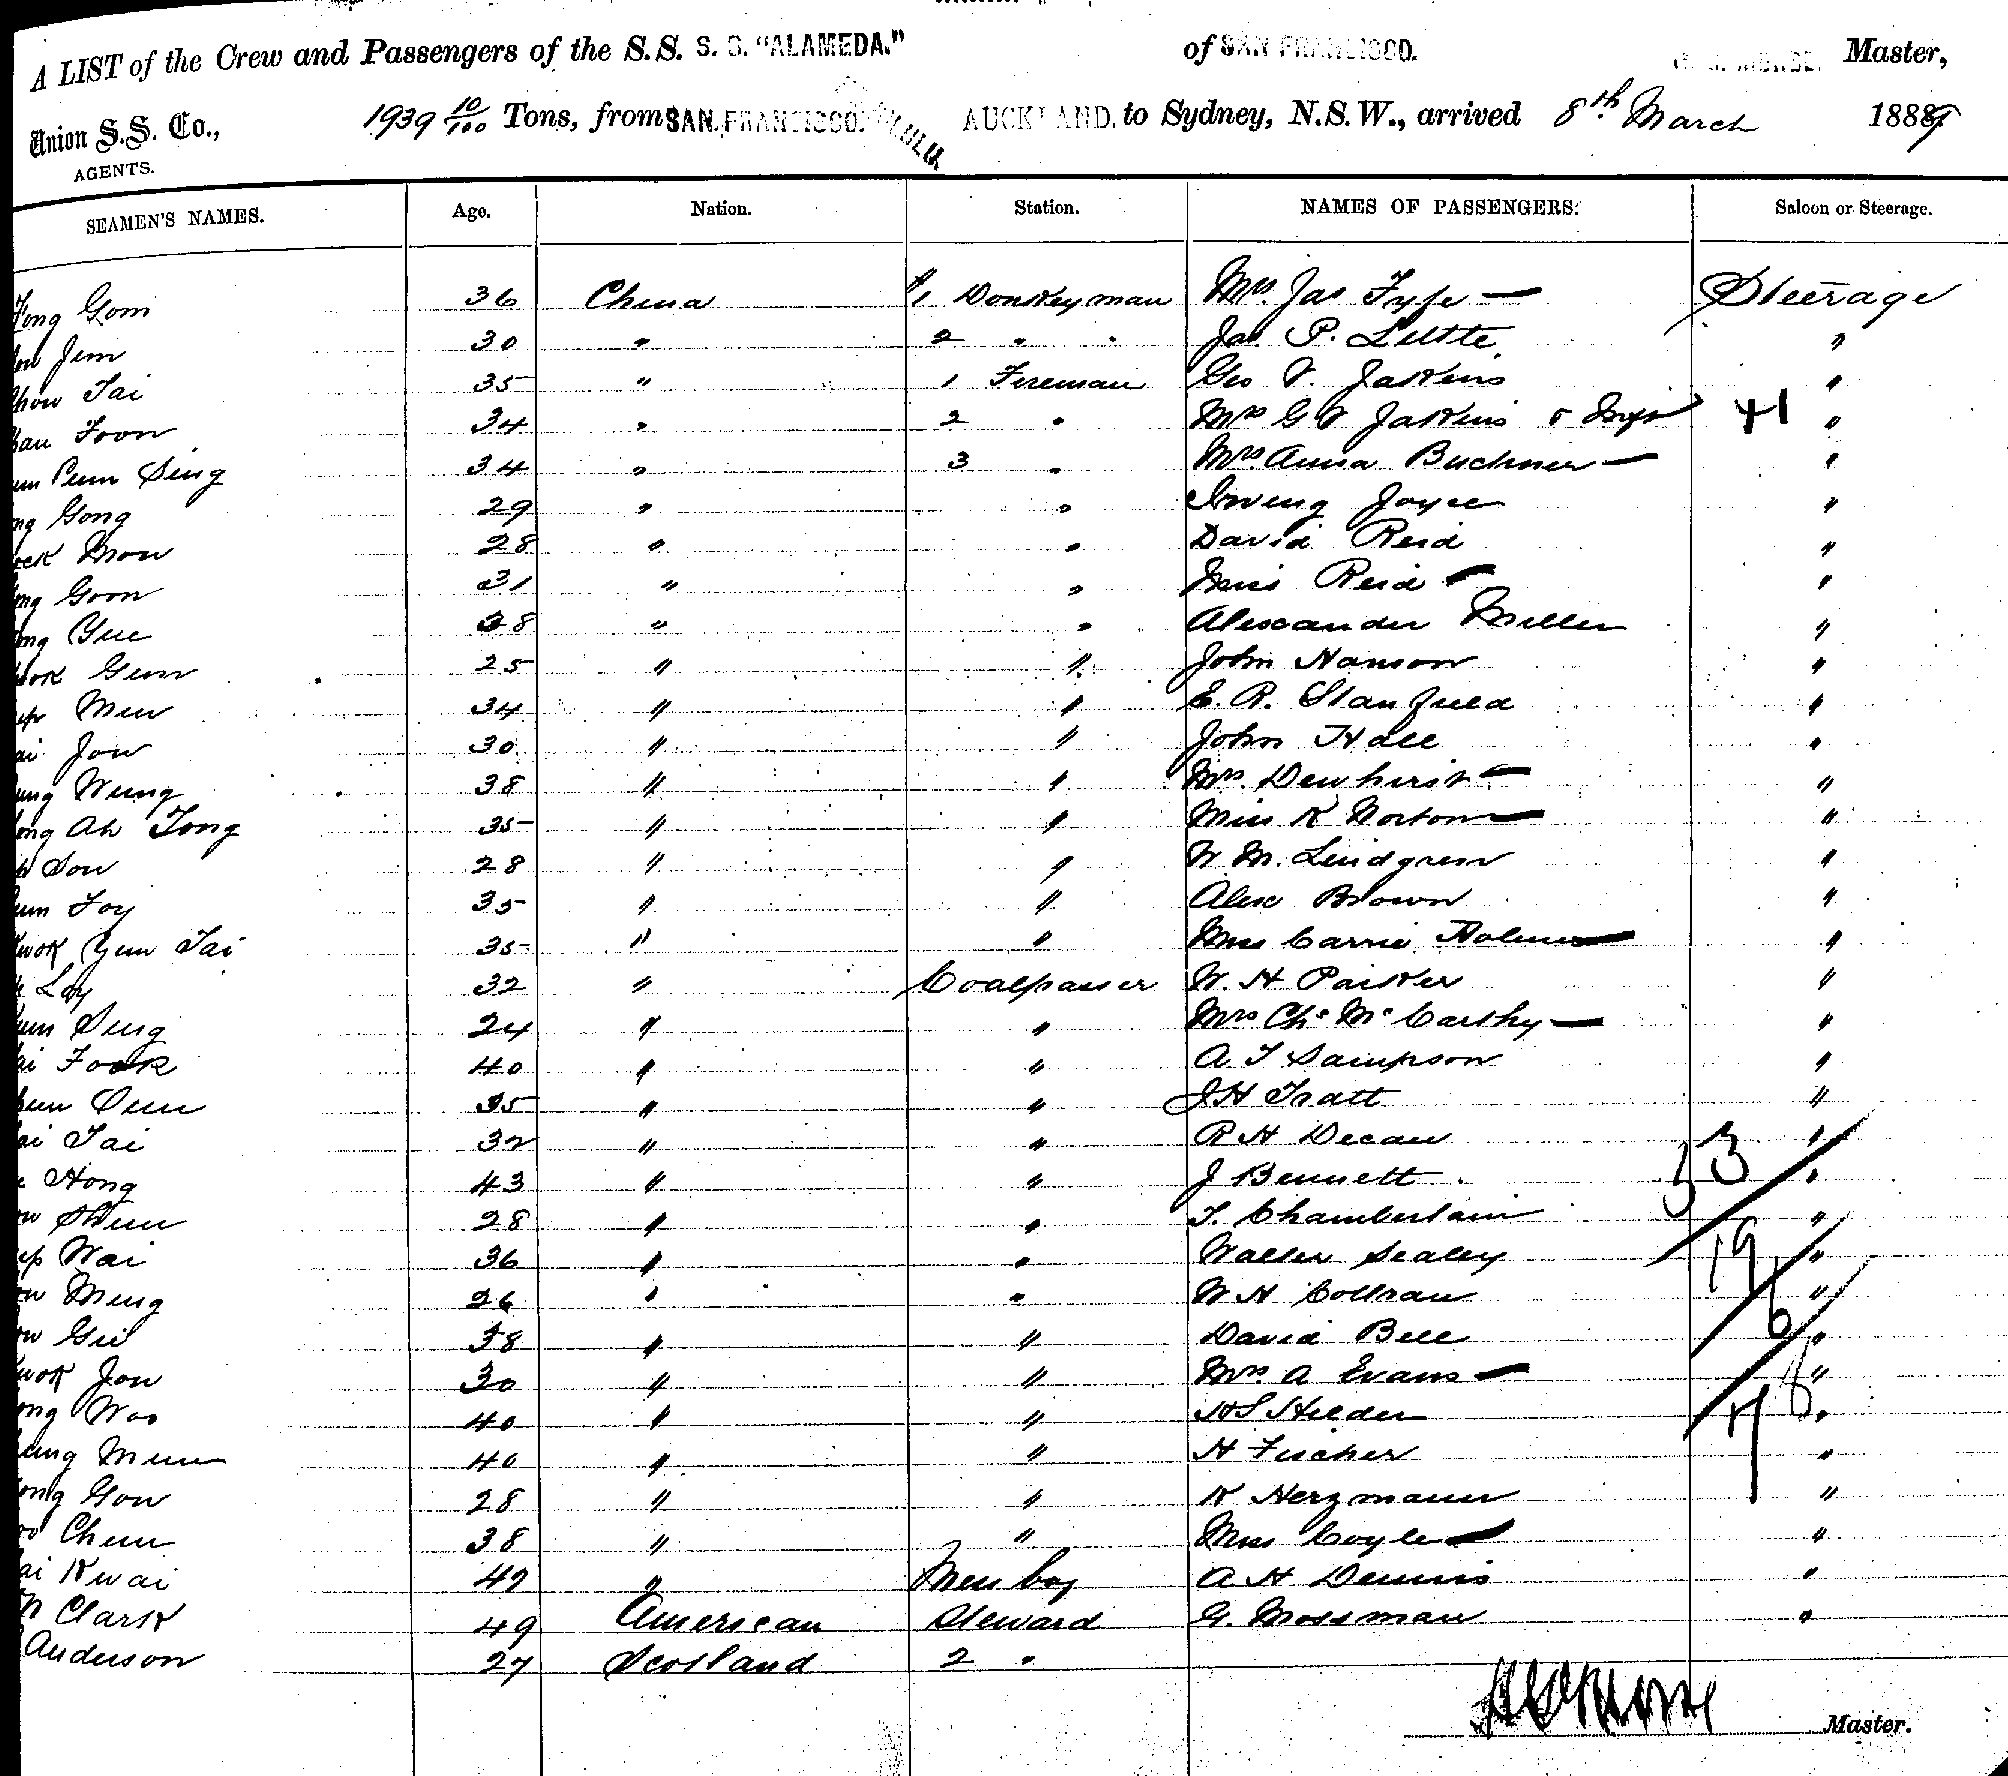 A LIST of the Crew and Passengers of the S.S. S. S. "ALAMEDA." of SAN FRANCISCO. Master,
Union S.S. Co., 1939 10/100 Tons, from SAN FRANCISCO. AUCKLAND. to Sydney, N.S.W., arrived 8th March 1889
AGENTS.
SEAMEN'S NAMES. Age. Nation. Station. NAMES OF PASSENGERS. Saloon or Steerage.
Gom 36 China 1 Donkeyman Mrs. Jas Fyfe — Steerage
Jim 30 " 2 " Jas. P. Little "
Tai 35 " 1 Fireman Geo V. Jaskins "
Foon 34 " 2 " Mrs G V Jaskins & Inft 41 "
Pun Sing 34 " 3 " Mrs Anna Buchner — "
Gong 29 " " Irving Joyce "
Mow 28 " " David Reid "
Goon 31 " " Miss Reid — "
Yue 38 " " Alexander Miller "
Gun 25 " " John Hanson "
Men 34 " " E. R. Stanfield "
Jow 30 " " John Hall "
Wung 38 " " Mrs. Dewhirst — "
Ah Tong 35 " " Miss K Norton — "
Son 28 " " W M. Lindgren "
Foy 35 " " Alex Brown "
Yun Tai 35 " " Miss Carrie Holmes — "
Loy 32 " Coalpasser W. H Parker "
Sing 24 " " Mrs Chs McCarthy — "
Fook 40 " " A T Sampson "
35 " " J H Tratt "
Tai 32 " " R H Decau "
Hong 43 " " J Bennett 33 "
Shun 28 " " T. Chamberlain "
Wai 36 " " Walter Sealey 19 "
Ming 26 " " W H Coltran "
Gee 38 " " David Bell 6 "
Jow 30 " " Mrs A Evans — "
Woo 40 " " H S Hilder 8 "
Mun 40 " " H Fischer "
Gow 28 " " K Herzmann "
Chun 38 " " Miss Coyle — "
Kwai 42 " Mess boy A H Dennis "
Clark 49 American Steward G. Mossman "
Anderson 27 Scotland 2 "
Master.